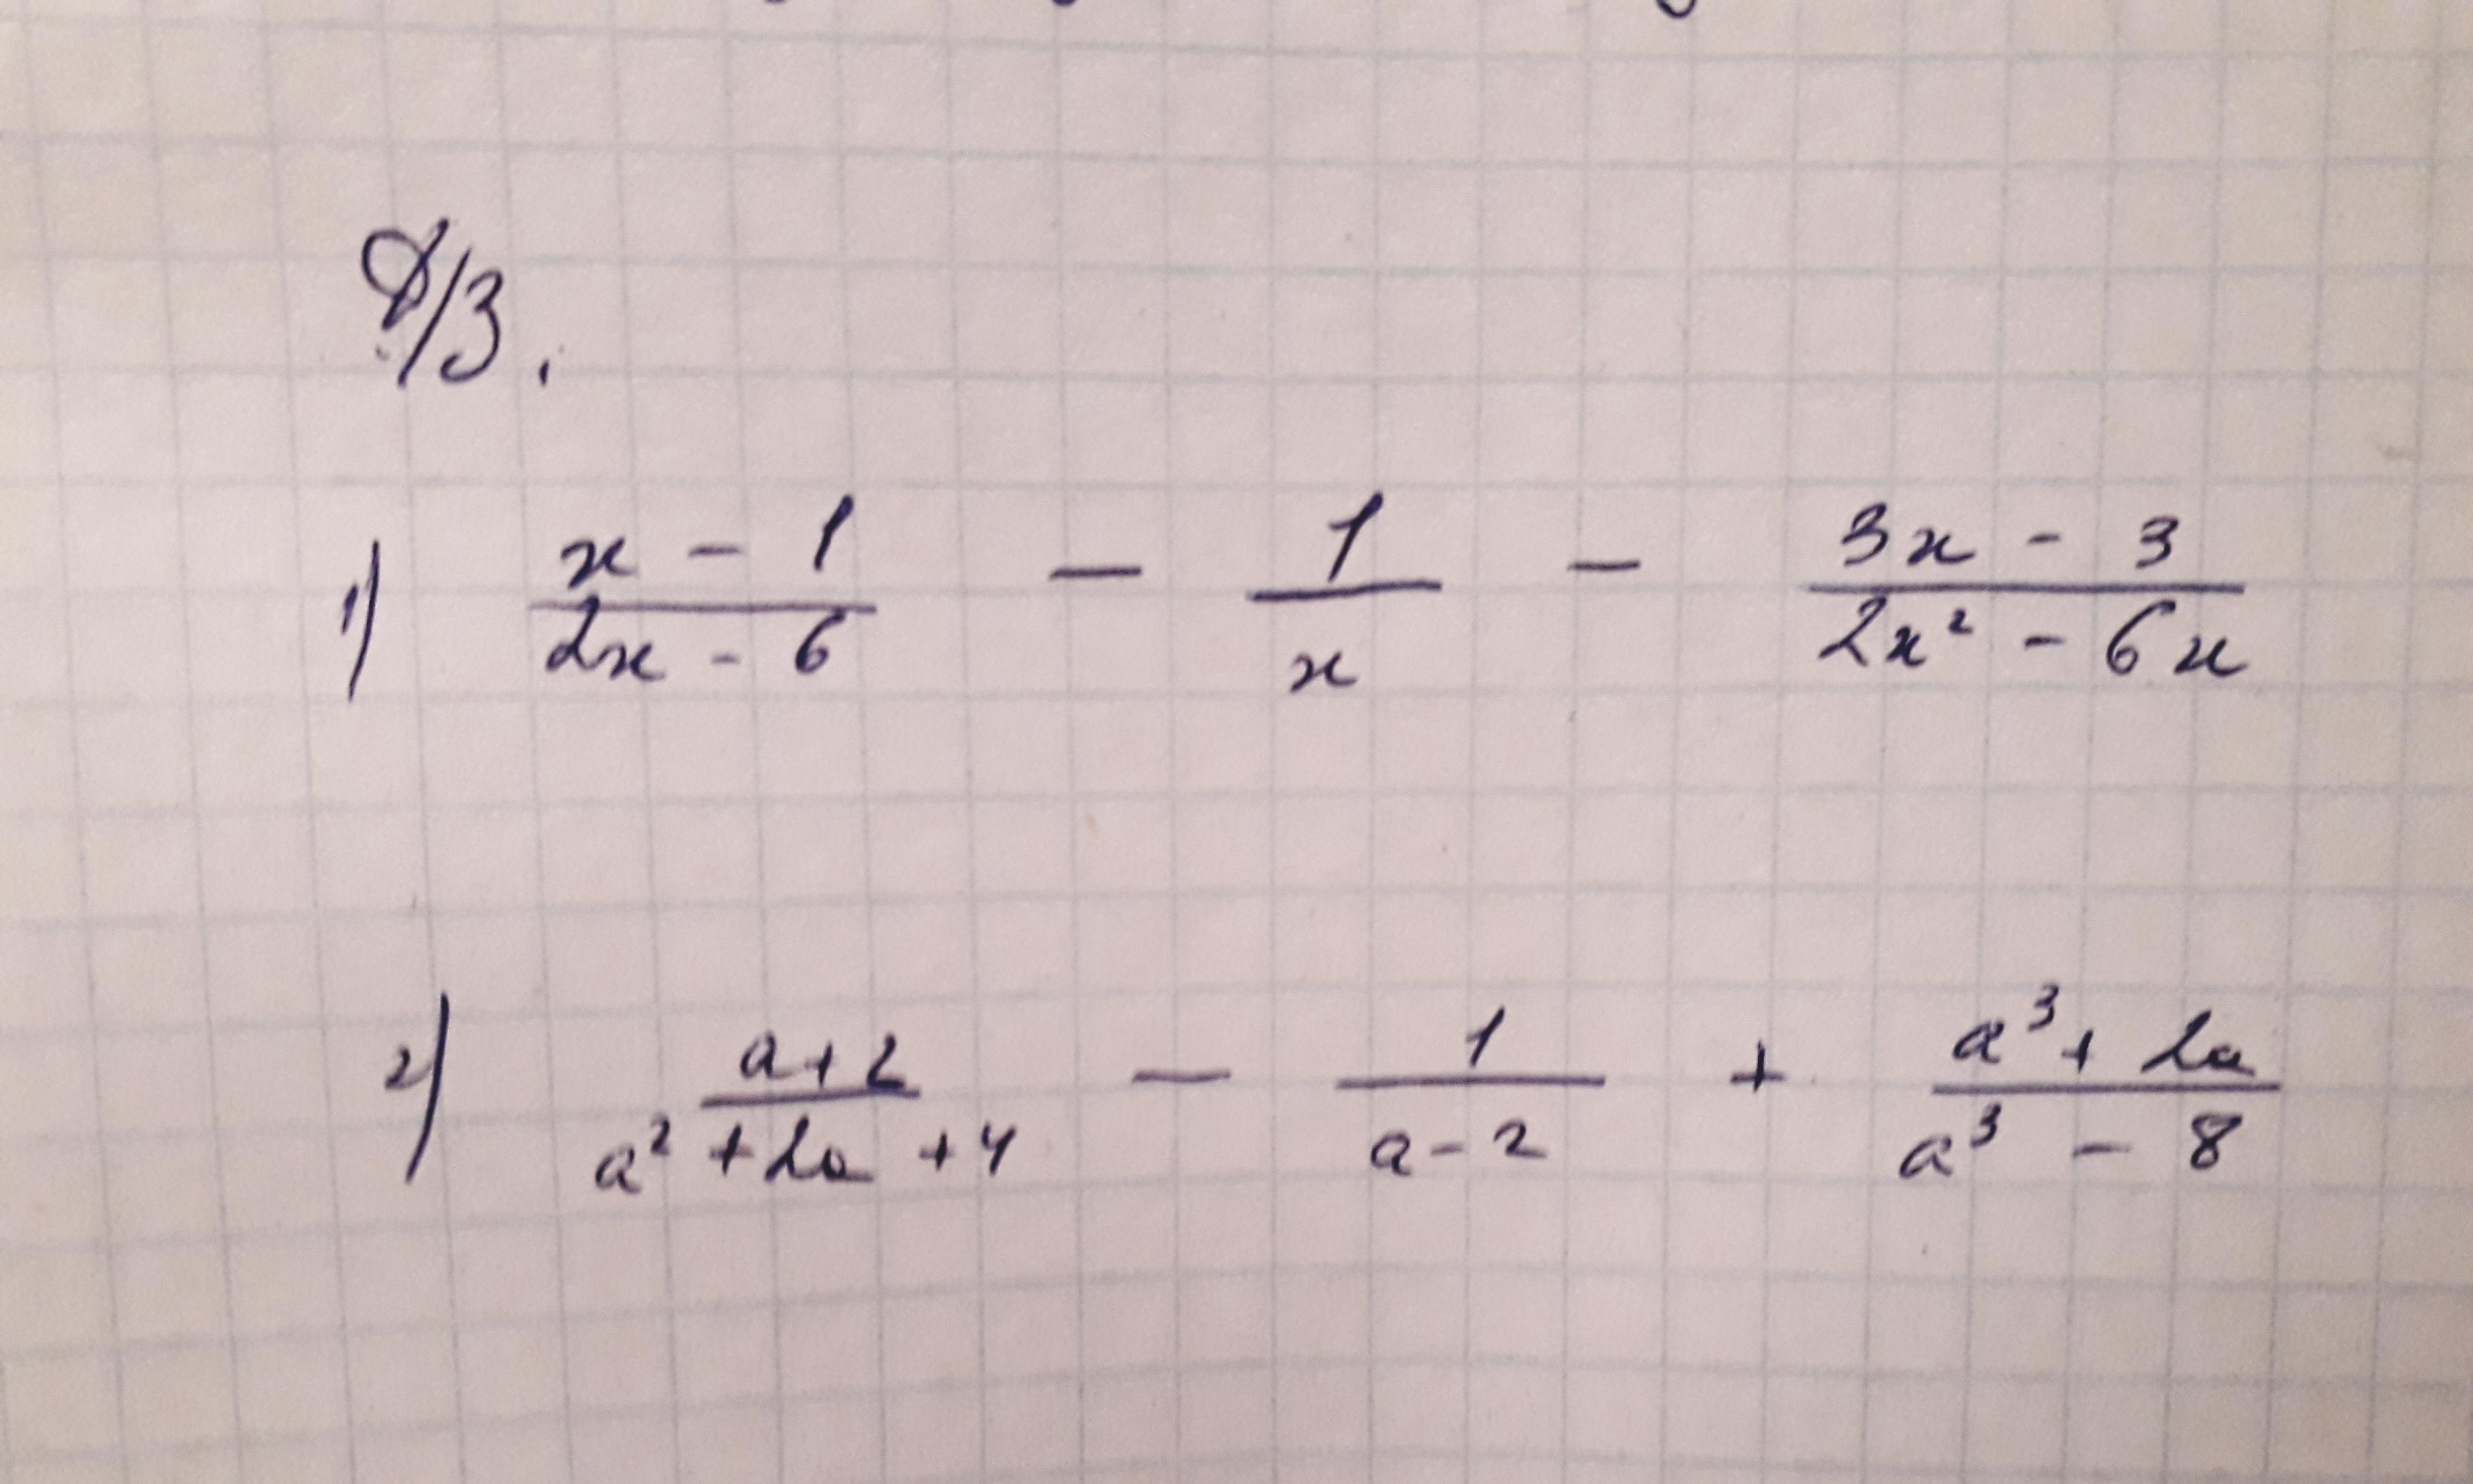 Д/З.
1) (x - 1)/(2x - 6) - 1/x - (3x - 3)/(2x² - 6x)
2) (a+2)/(a² + 2a + 4) - 1/(a - 2) + (a³ + 2a)/(a³ - 8)